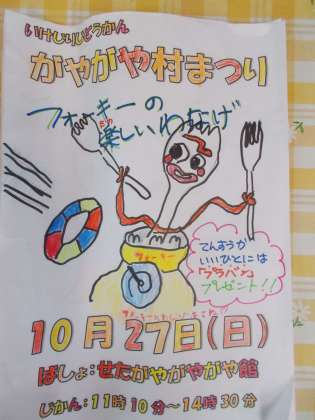 いけじりじどうかん
がやがや村まつり
フォーキーの
楽しいわなげ
フォーキー
てんすうが
いいひとには
「プラバン」
プレゼント!!
10月27日(日)
ばしょ:せたがやがやがや館
じかん:11時10分~14時30分